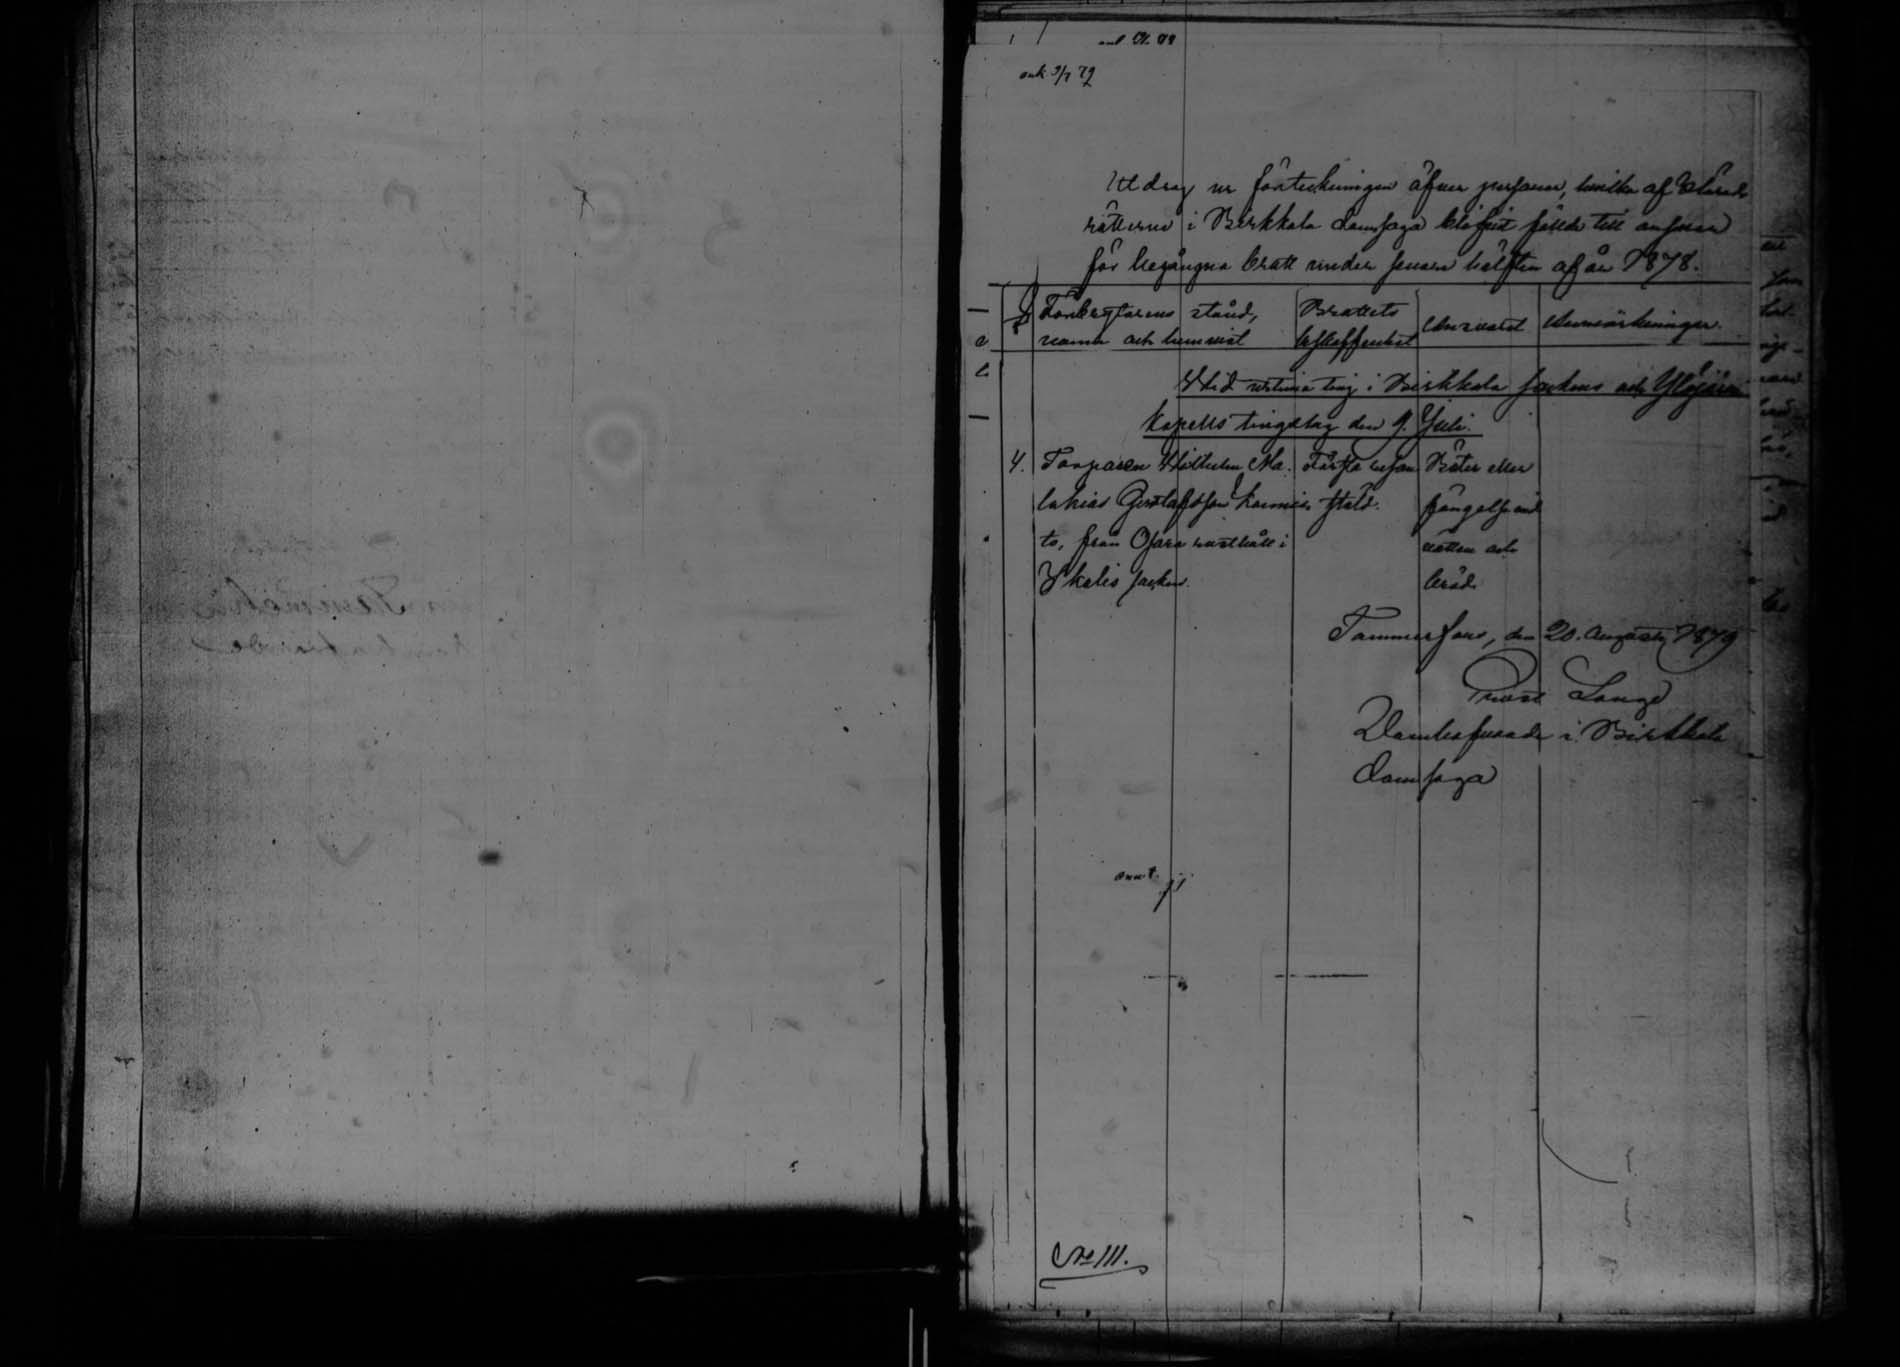 ank 9/7 79
Utdrag ur förteckningen öfver personer, hvilka af Härads
rätterne i Birkkala domsaga blifvit fälde till ansvar
för begångna brott under senare hälften af år 1878.
Förbrytarens stånd,
namn och hemvist
Brottets
beskaffenhet
Ansvaret
Anmärkningar.
Vid urtima ting i Birkkala socken och Ylöjärvi
kapells tingslag den 9. Juli.
4. Torparen Wilhelm Ma-
lakias Gustafsson
från Ojara rusthåll i
Ikalis socken.
Första resan
stöld.
Böter eller
fängelse vid
vatten och
bröd
Tammerfors, den 20. Augusti 1879
Lange
Domhafvande i Birkkala
domsaga
No 111.